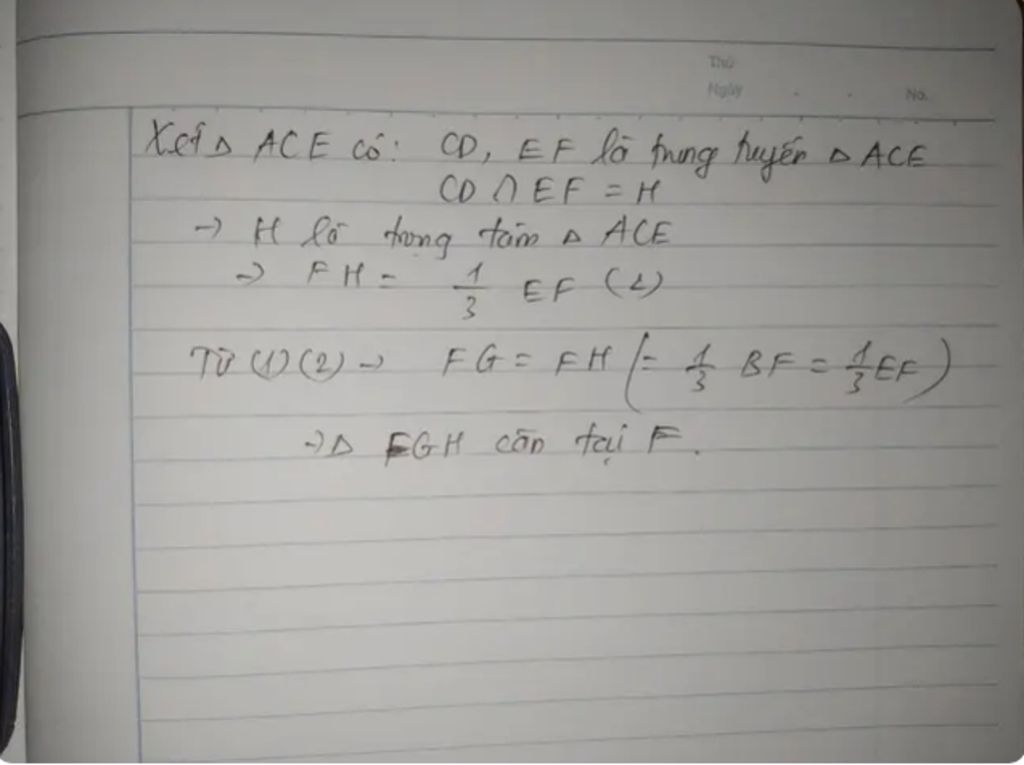 Thứ
Ngày . . No.
Xét Δ ACE có: CD, EF là trung tuyến Δ ACE
CD ∩ EF = H
→ H là trọng tâm Δ ACE
→ FH = 1/3 EF (2)
Từ (1) (2) → FG = FH (= 1/3 BF = 1/3 EF)
→ Δ FGH cân tại F.